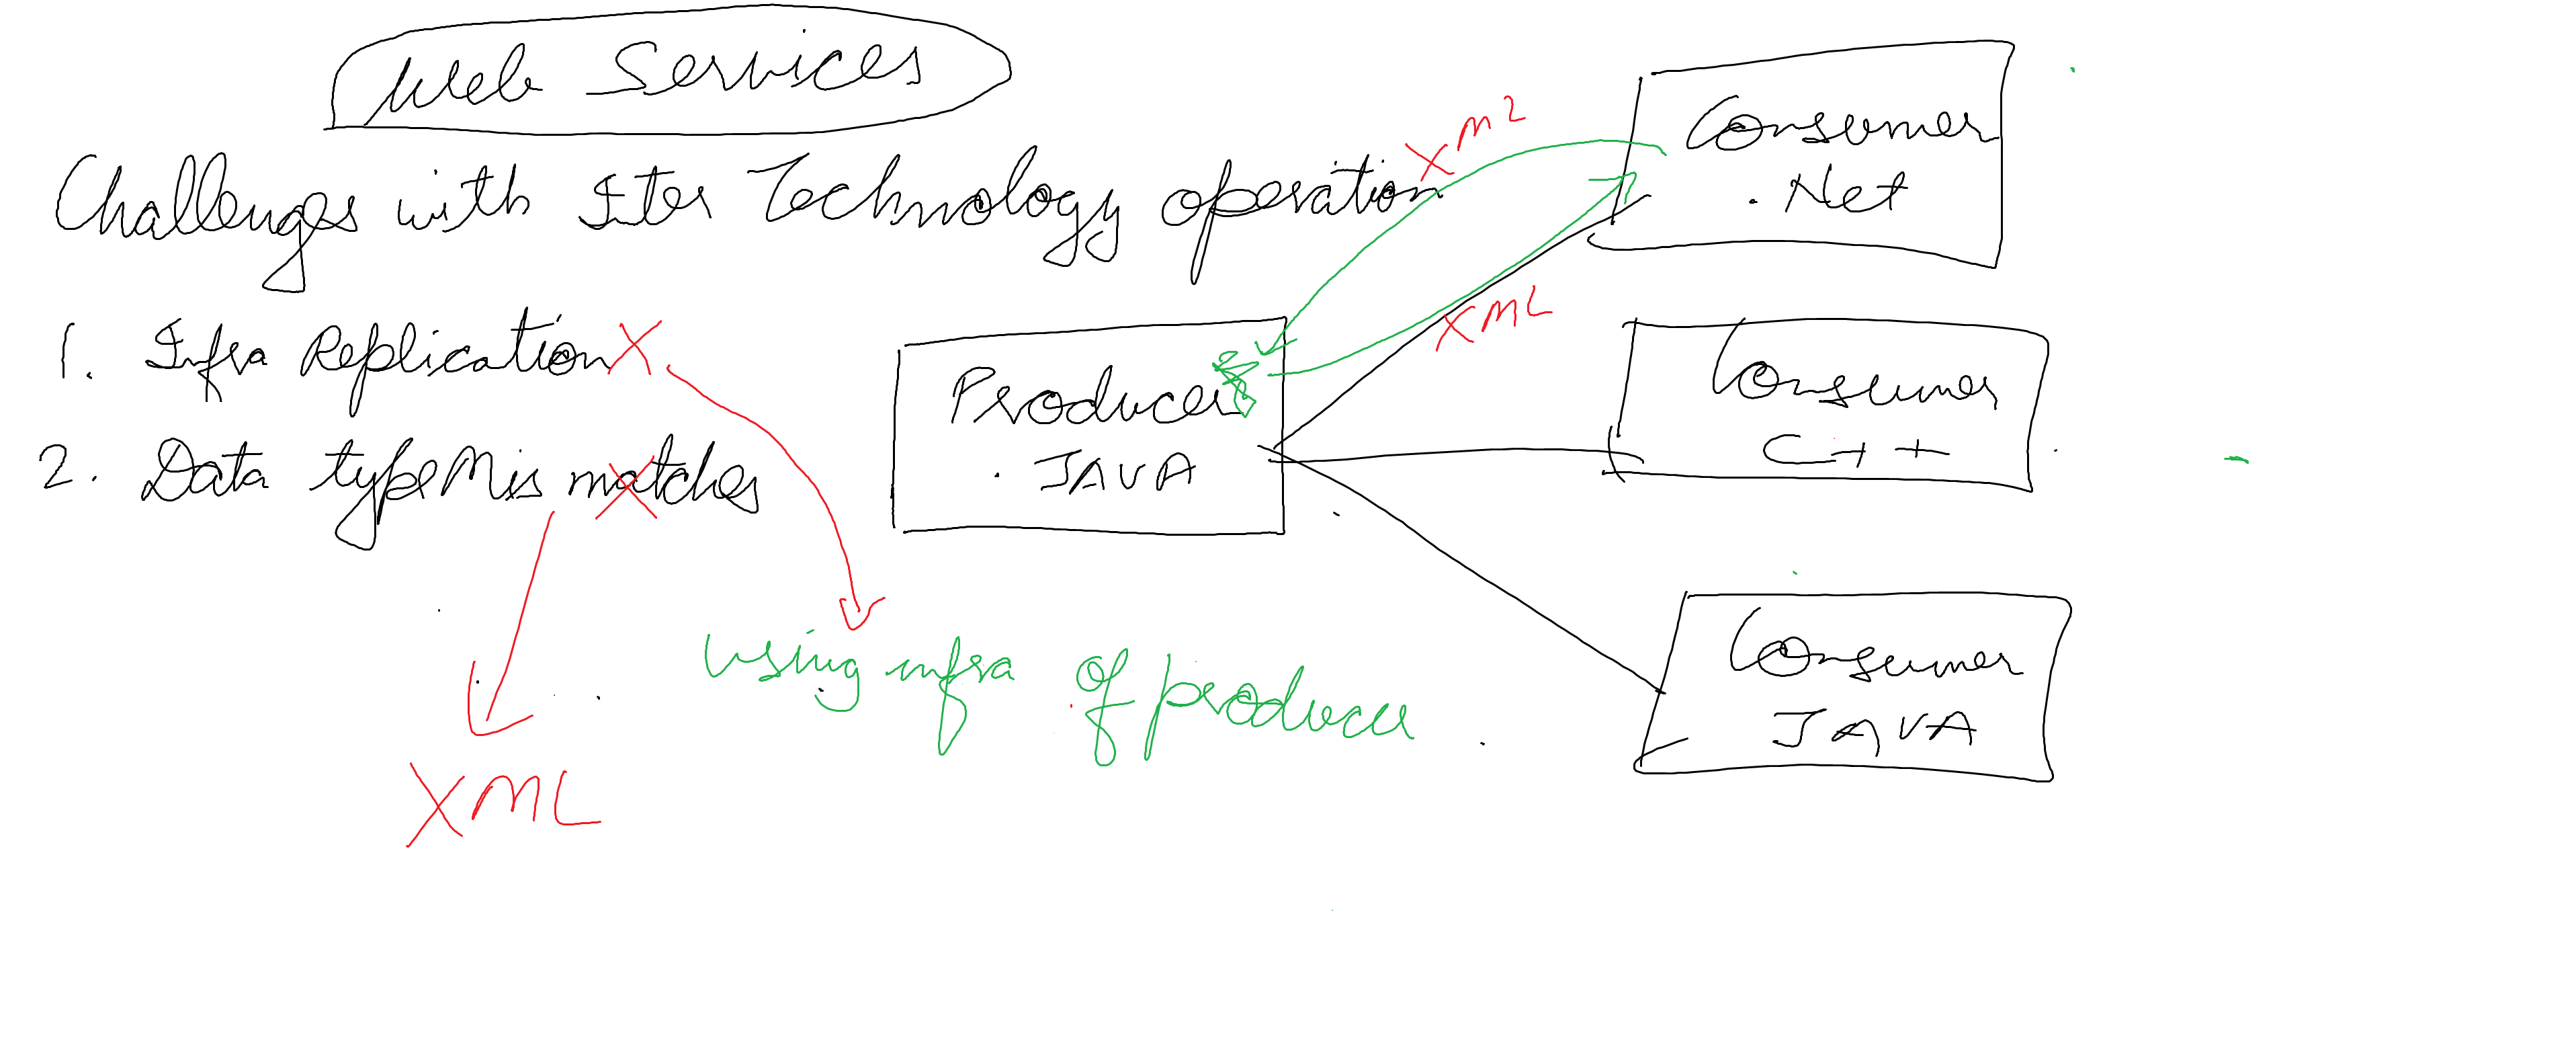 Web Services
Challenges with Inter Technology operation
1. Infra Replication X
2. Data type Mis matches
XML
using infra of producer
XML
XML
Producer
. JAVA
Consumer
.Net
Consumer
C++
Consumer
JAVA